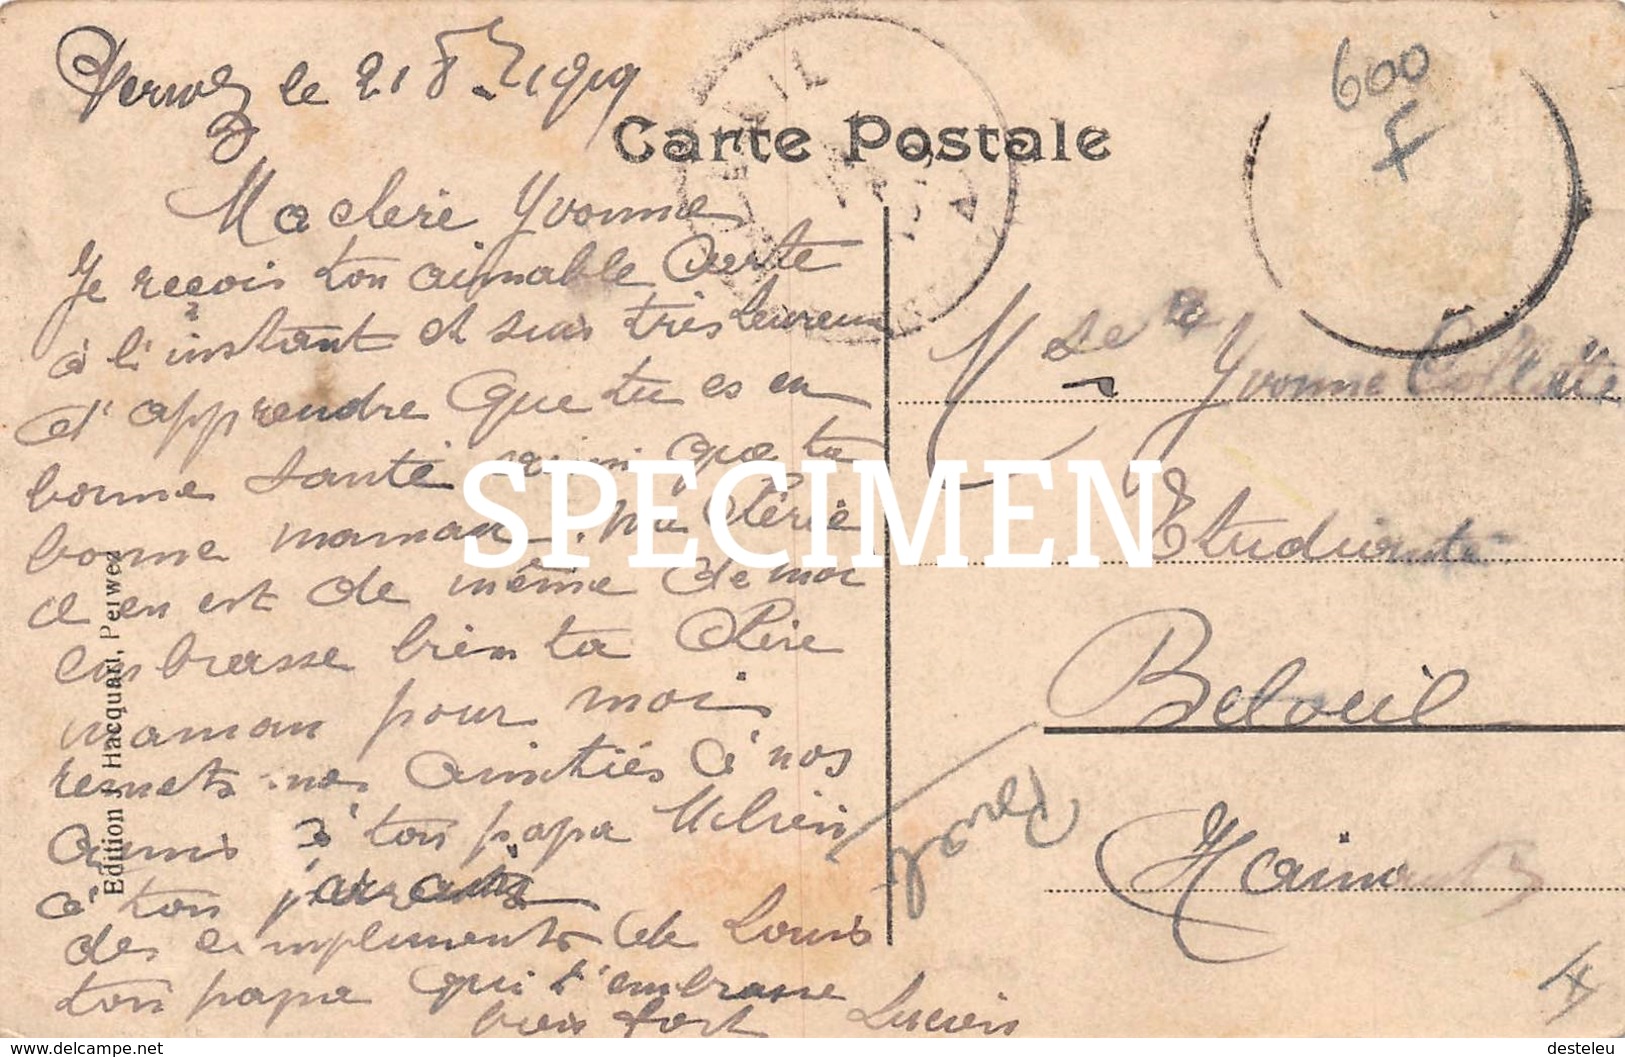 Perwez le 21 8 - 1919
Carte Postale
600
F
Ma cleré Yvonne
Je reçois ton aimable Carte
à l'instant et suis très heureux
d'apprendre que tu es en
bonne santé ainsi que ta
bonne maman. Ma Chérie
il en est de même de moi
embrasse bien ta Chère
maman pour moi
remets nos amitiés à nos
amis à ton papa
à ton parrain
des compliments de Louis
ton papa qui t'embrasse
bien fort Lucien
Melle Yvonne Collette
Etudiante
Beloeil
Hainaut
Edition J. Hacquart, Perwez
SPECIMEN
www.delcampe.net
desteleu